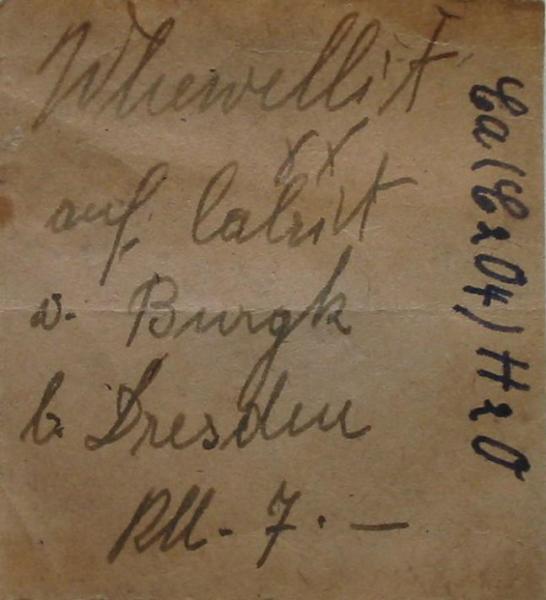 Whewellit
xx
auf Calcit
v. Burgk
b. Dresden
RM - 7. —
Ca(C2O4)H2O